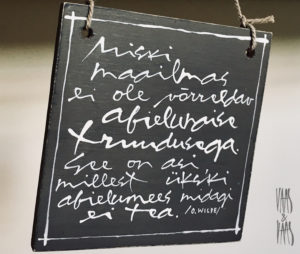 Miski
maailmas
ei ole võrreldav
abielunaise
truudusega.
See on asi
millest ükski
abielumees midagi
ei tea. /O.WILDE/
VAAS
&
PAAS